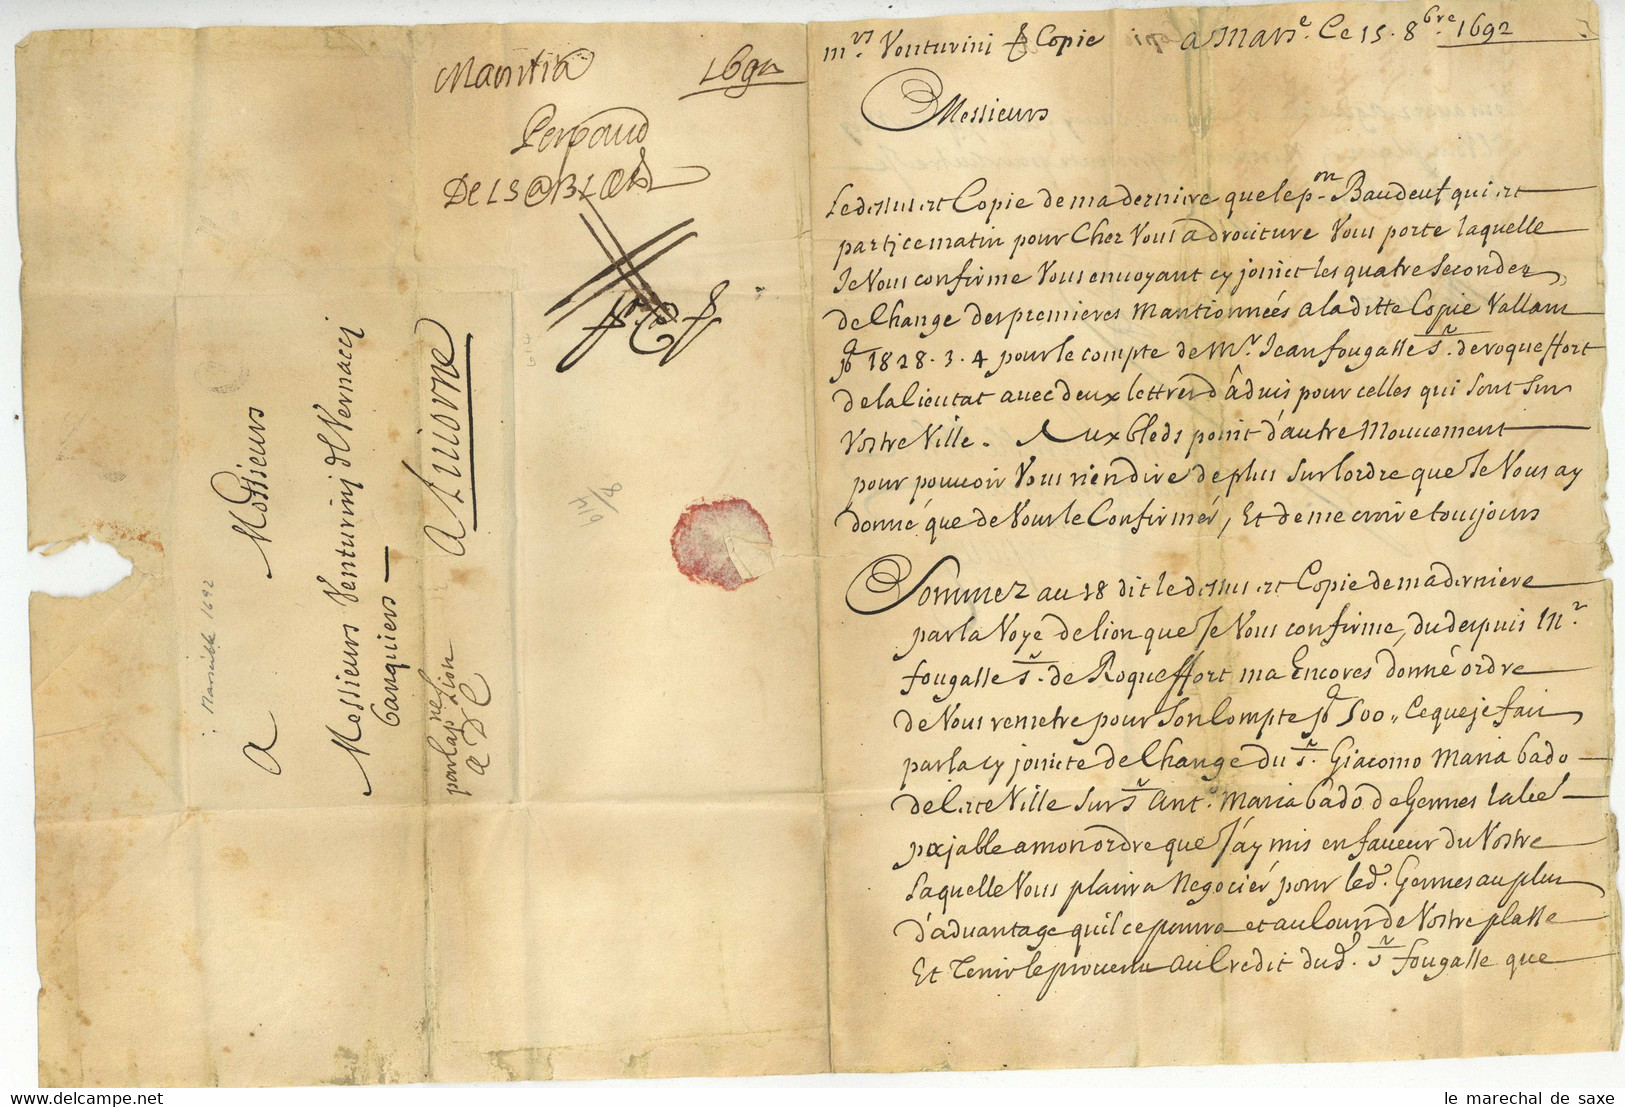 Marsilia 1692
DELSABLON
A
Messieurs
Messieurs Venturinj & Vernaccj
banquiers
A Liuorne
par la voye de Lion
Marseille 1692
mrs. Venturini p Copie
a Mars.e Ce 15. 8bre. 1692
Messieurs
Le dessus est Copie de ma derniere que le pon Baudeuf qui est
parti ce matin pour Chez Vous a droiture Vous porte laquelle
Je Vous confirme Vous enuoyant cy joinct les quatre secondes
de Change des premieres Mantionnées a la ditte Copie Vallant
1828.3.4 pour le compte de Mr. Jean fougasse sr. de roqueffort
de la Cieutat auec deux lettres d'âduis pour celles qui sont sur
Vostre Ville. Aux bleds point d'autre Mouuement
pour pouuoir Vous rien dire de plus sur l'ordre que Je Vous ay
donné que de Vous le Confirmér, Et de me croire toujours
Sommez au 18 dit le dessus est Copie de ma derniere
par la Voye de lion que Je Vous confirme, du despuis Mr.
fougasse sr. de Roqueffort ma Encores donné ordre
de Vous remetre pour son Compte 500 „ Ce que je fais
par la cy joincte de Change du sr. Giacomo Maria bado
de Cete Ville sur sr Ant.o Maria bado de Gennes
pajable a mon ordre que J'ay mis en faueur du Vostre
Laquelle Vous plairra Negociér pour led. Gennes au plus
d'aduantage qu'il ce pourra et au Cours de Vostre plasse
Et Tenir le prouenu au Credit dud. sr fougasse que
le marechal de saxe